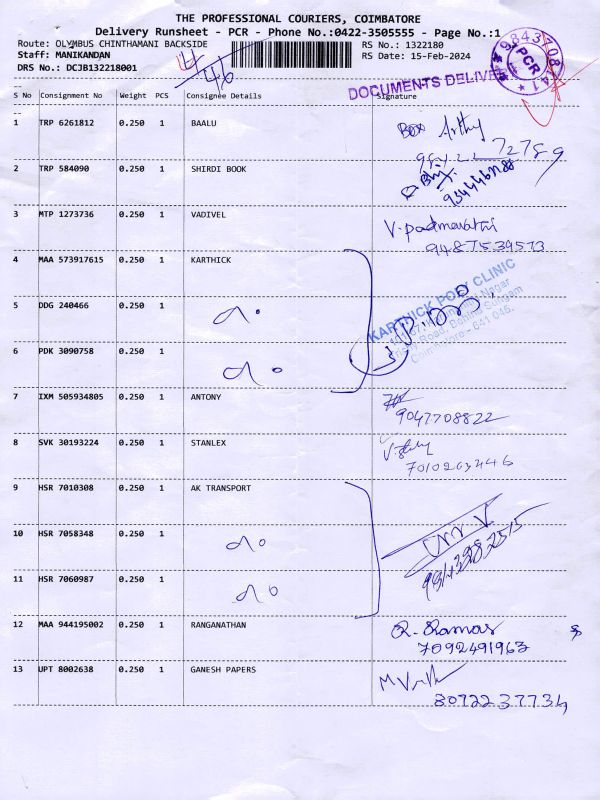 THE PROFESSIONAL COURIERS, COIMBATORE
Delivery Runsheet - PCR - Phone No.:0422-3505555 - Page No.:1
Route: OLYMBUS CHINTHAMANI BACKSIDE RS No.: 1322180
Staff: MANIKANDAN RS Date: 15-Feb-2024
DRS No.: DCJB132218001
4/46
DOCUMENTS DELIVE
PCR
S No Consignment No Weight PCS Consignee Details Signature
1 TRP 6261812 0.250 1 BAALU
2 TRP 584090 0.250 1 SHIRDI BOOK
3 MTP 1273736 0.250 1 VADIVEL V. padmavathi
9487539573
4 MAA 573917615 0.250 1 KARTHICK
KARTHICK POLY CLINIC
5 DDG 240466 0.250 1
Coimbatore - 641 045.
6 PDK 3090758 0.250 1
7 IXM 505934805 0.250 1 ANTONY
9047708822
8 SVK 30193224 0.250 1 STANLEX
7010263446
9 HSR 7010308 0.250 1 AK TRANSPORT
10 HSR 7058348 0.250 1
11 HSR 7060987 0.250 1
12 MAA 944195002 0.250 1 RANGANATHAN
7092491963
13 UPT 8002638 0.250 1 GANESH PAPERS